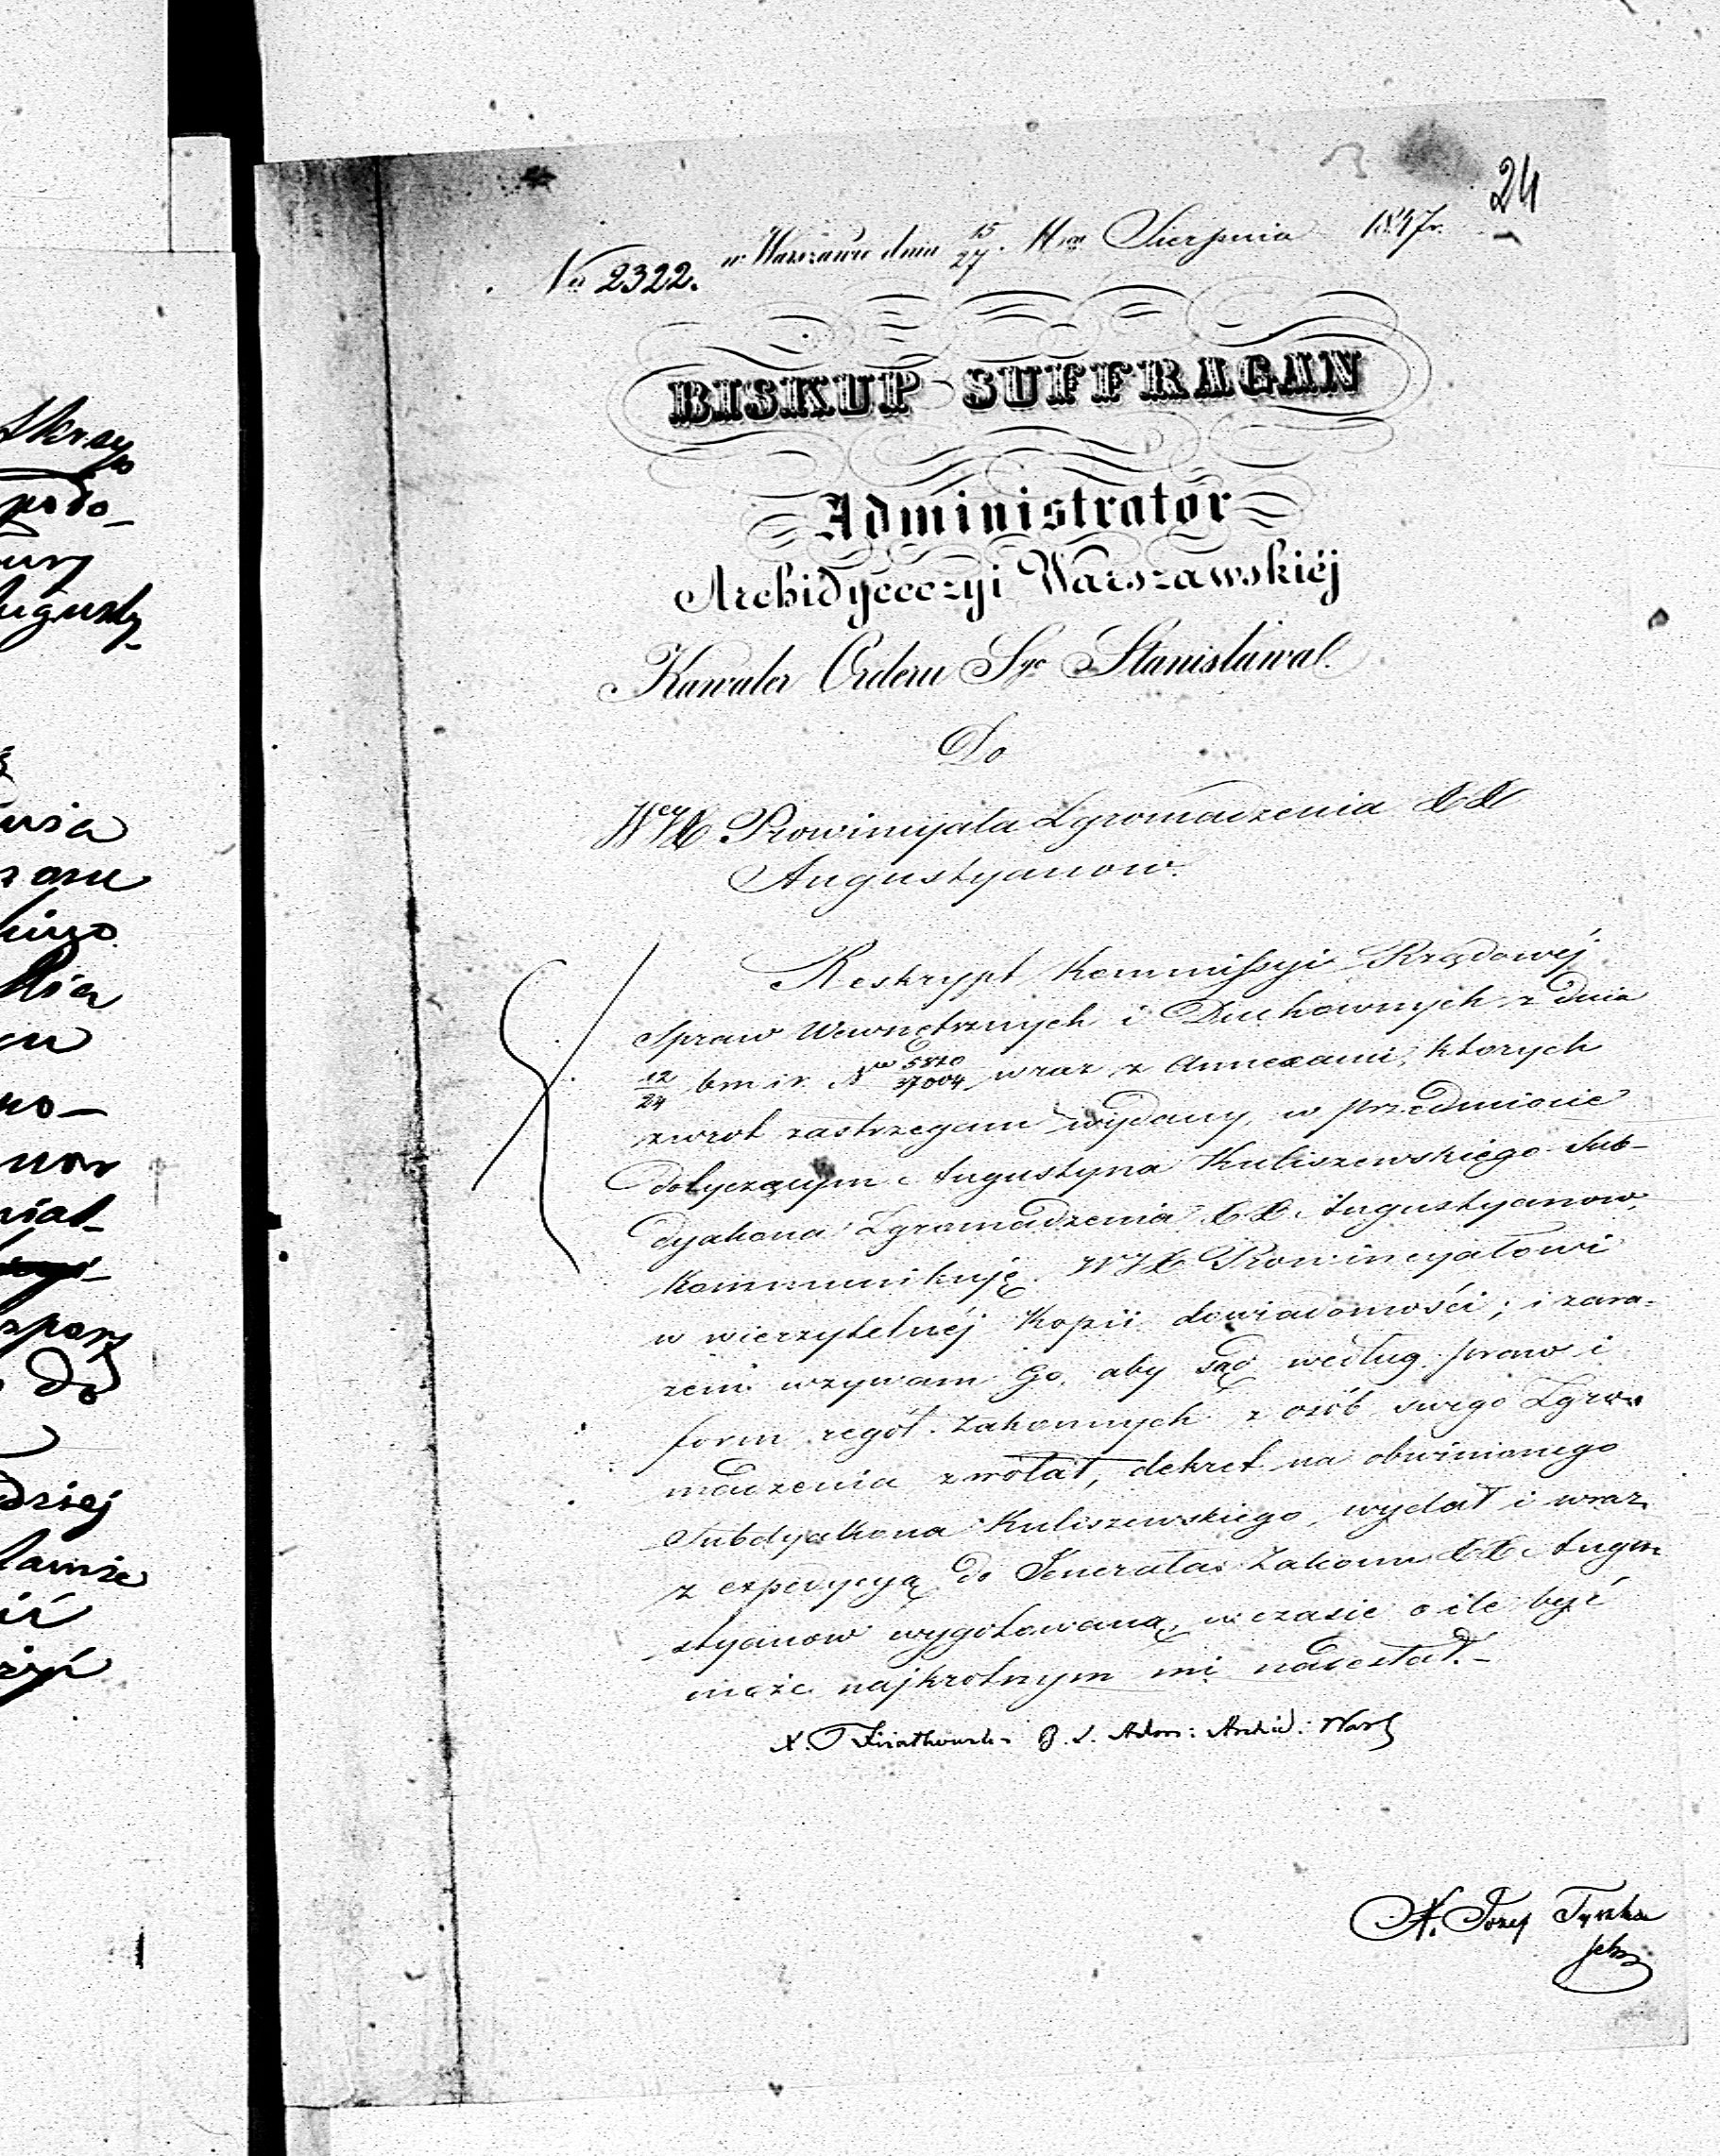 24
No 2322. w Warszawie dnia 15/27. Mca Sierpnia 1847 r.
BISKUP SUFFRAGAN
Administrator
Archidyecezyi Warszawskiéj
Kawaler Orderu Sgo Stanisława
Do
WJX Prowincyała Zgromadzenia XX
Augustyanow.
Reskrypt Kommissyi Rządowéj
Spraw Wewnętrznych i Duchownych z dnia
12/24 bm i r. No 5820/37004 wraz z Annexami, ktorych
zwrot zastrzegam wydany, w przedmiocie
dotyczącym Augustyna Kuliszewskiego Sub-
dyakona Zgromadzenia XX. Augustyanow,
kommunikuję WJX Prowincyałowi
w wierzytelnéj kopii dowiadomości; i zara-
zem wzywam Go, aby Sąd według praw i
form reguł zakonnych z osób swego Zgro-
madzenia zwołał, dekret na obwinionego
Subdyakona Kuliszewskiego, wydał i wraz
z expedycyą do Jenerała Zakonu XX Augu-
styanow wygotowaną, w czasie o ile być
może najkrotszym mi nadesłał.-
X. T Kiatkowski B. S. Adm: Archid: Wars
X. Józef Tyszka
Skrzy
podo-
Augusty-
no-
do
dziej